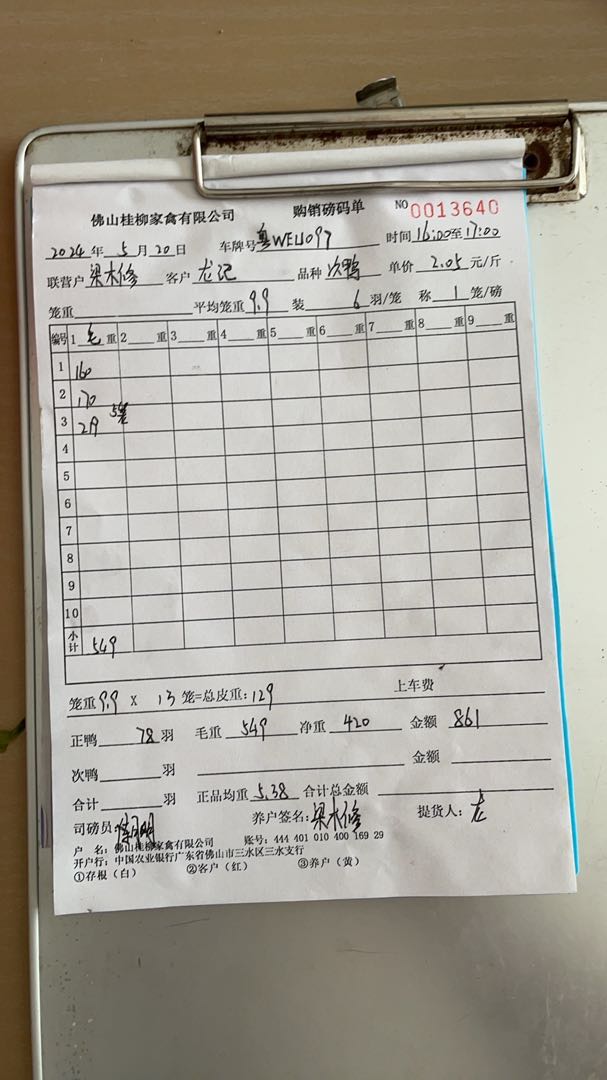 佛山桂柳家禽有限公司 购销磅码单 NO 0013640
2024年5月20日 车牌号粤WEU097 时间16:00至17:00
联营户 梁木修 客户 龙记 品种 次鸭 单价 2.05 元/斤
笼重 平均笼重 9.9 装 6 羽/笼 称 1 笼/磅
编号 1 毛 重 2 重 3 重 4 重 5 重 6 重 7 重 8 重 9 重
1 160
2 170
3 219 5笼
4
5
6
7
8
9
10
小计 549
笼重 9.9 X 13 笼=总皮重:129 上车费
正鸭 78 羽 毛重 549 净重 420 金额 861
次鸭 羽 金额
合计 羽 正品均重 5.38 合计总金额
司磅员: 养户签名:梁木修 提货人:龙
户 名:佛山桂柳家禽有限公司 账号:444 401 010 400 169 29
开户行:中国农业银行广东省佛山市三水区三水支行
①存根(白) ②客户(红) ③养户(黄)